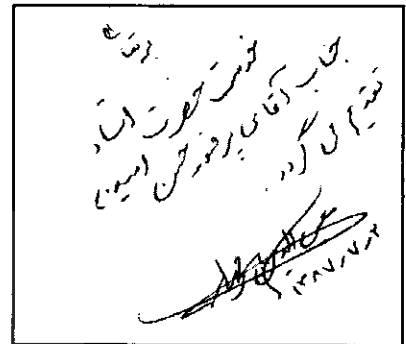 خدمت حضرت استاد
جناب آقای پرفسور حسن امین
تقدیم می گردد
۱۳۸۷-۷-۲